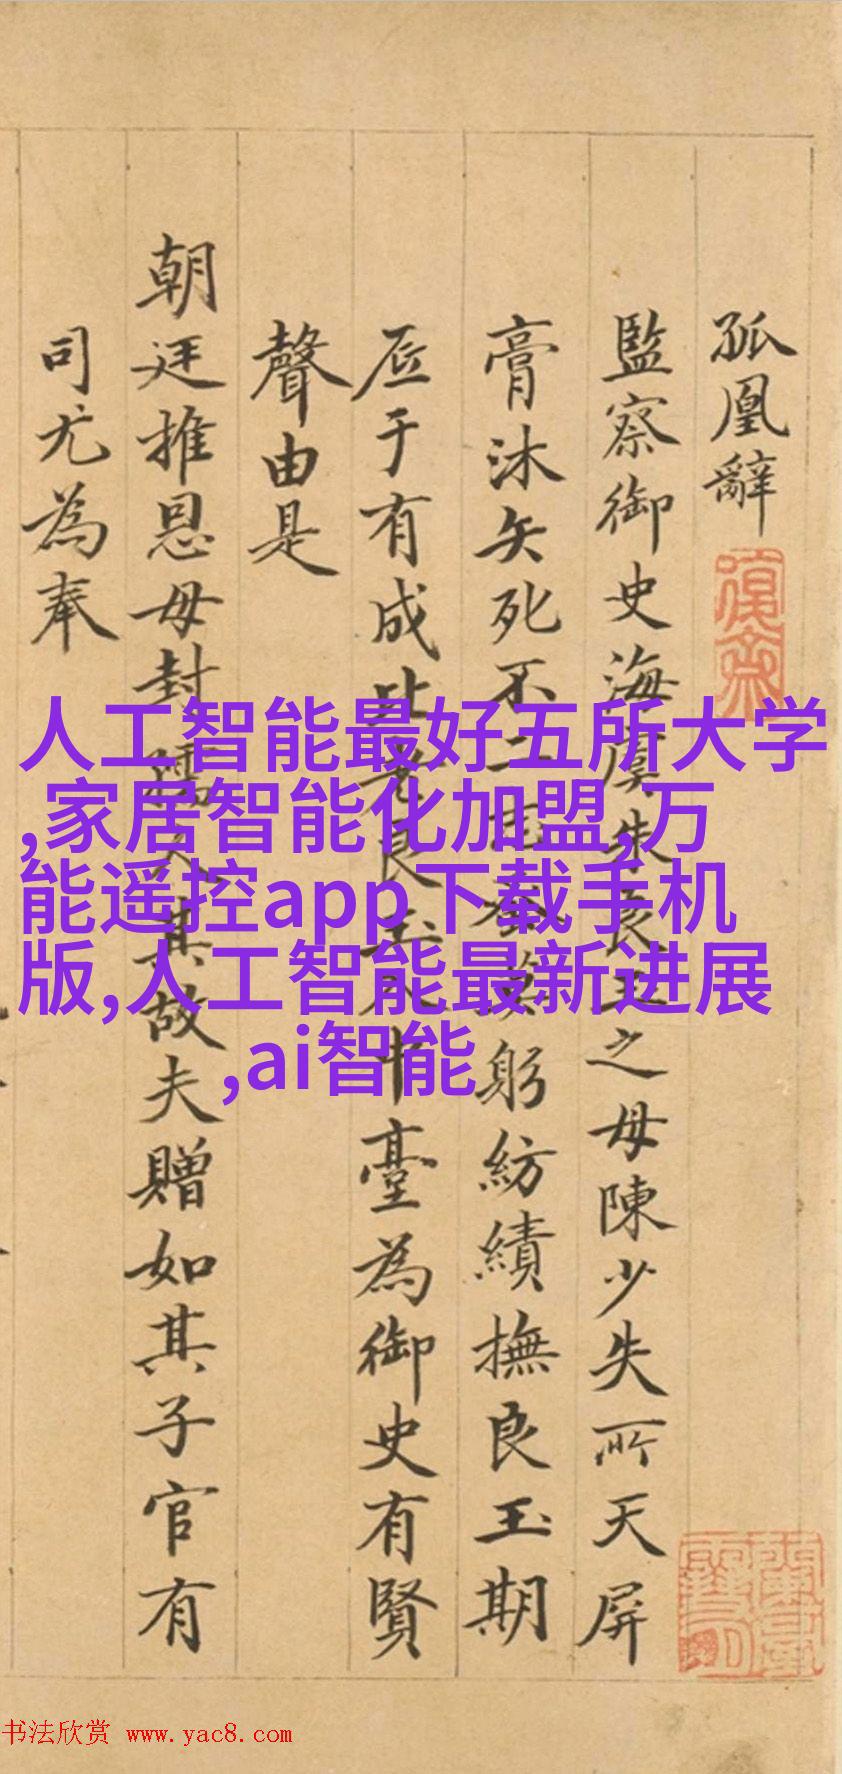 孤凰辭
監察御史海虞朱良玉之母陳少失所天屏
膏沐矢死不二志養姑躬紡績撫良玉期
底于有成
聲由是
朝廷推恩母封孺人其故夫贈如其子官有
司尤為奉
臺為御史有賢
人工智能最好五所大学
,家居智能化加盟,万
能遥控app下载手机
版,人工智能最新进展
,ai智能
书法欣赏 www.yac8.com